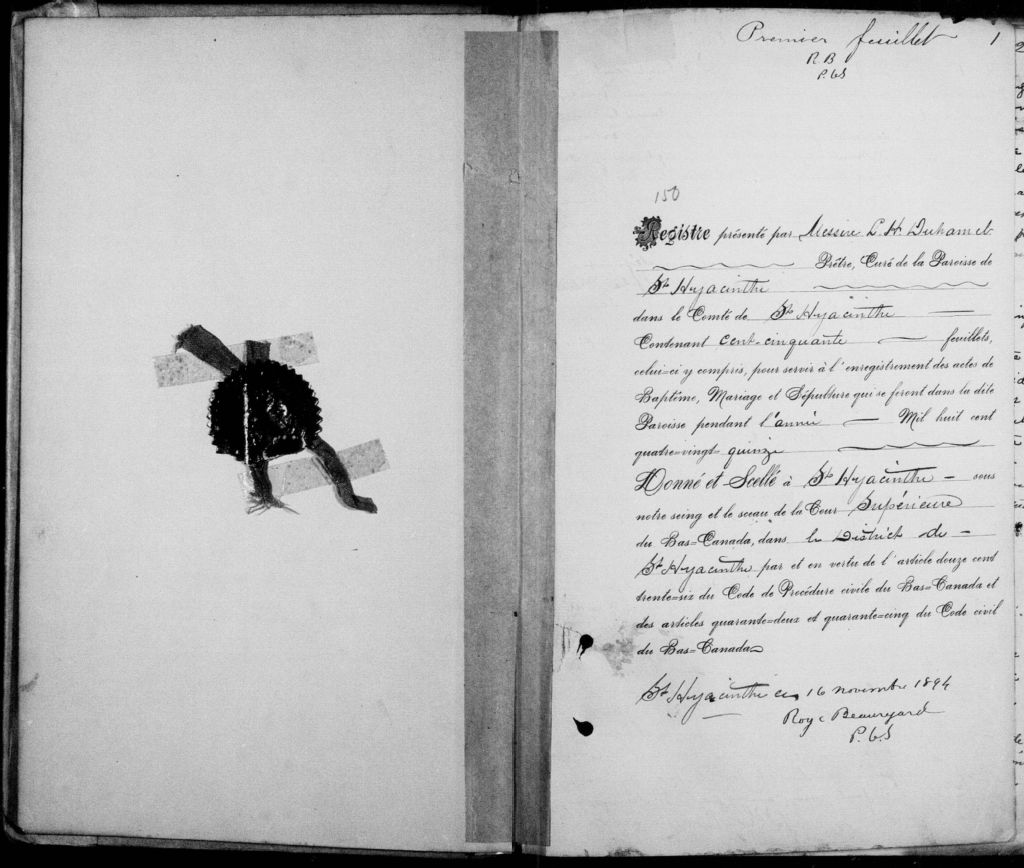 Premier feuillet 1
R B
P.C.S
150
Registre présenté par Messire L. H. Duhamel
Prêtre, Curé de la Paroisse de
St. Hyacinthe
dans le Comté de St. Hyacinthe
Contenant cent-cinquante feuillets,
celui=ci y compris, pour servir à l'enregistrement des actes de
Baptême, Mariage et Sépulture qui se feront dans la dite
Paroisse pendant l'année Mil huit cent
quatre=vingt=quinze
Donné et Scellé à St. Hyacinthe sous
notre seing et le sceau de la Cour Supérieure
du Bas=Canada, dans le District de
St. Hyacinthe par et en vertu de l'article douze cent
trente=six du Code de Procédure civile du Bas=Canada et
des articles quarante=deux et quarante=cinq du Code civil
du Bas=Canada
St. Hyacinthe ce 16 novembre 1894
Roy & Beauregard
P.C.S